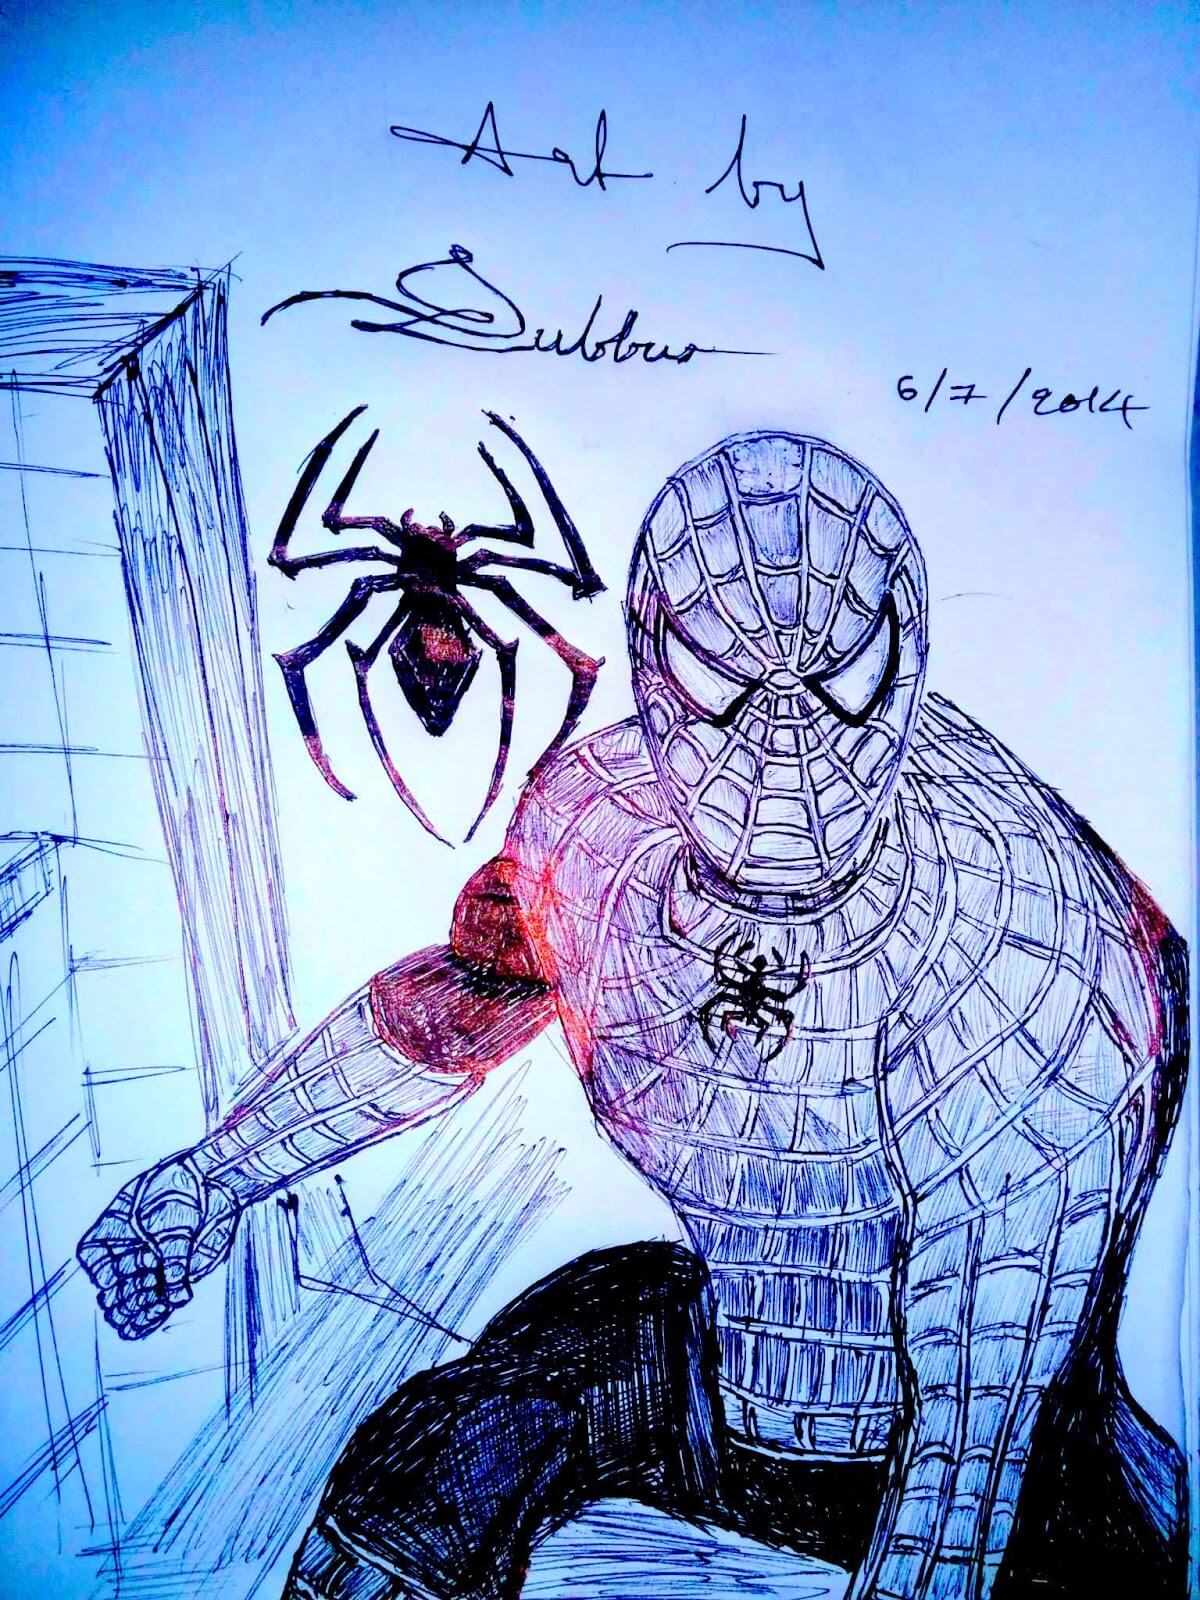 Art by
Subbus
6/7/2014